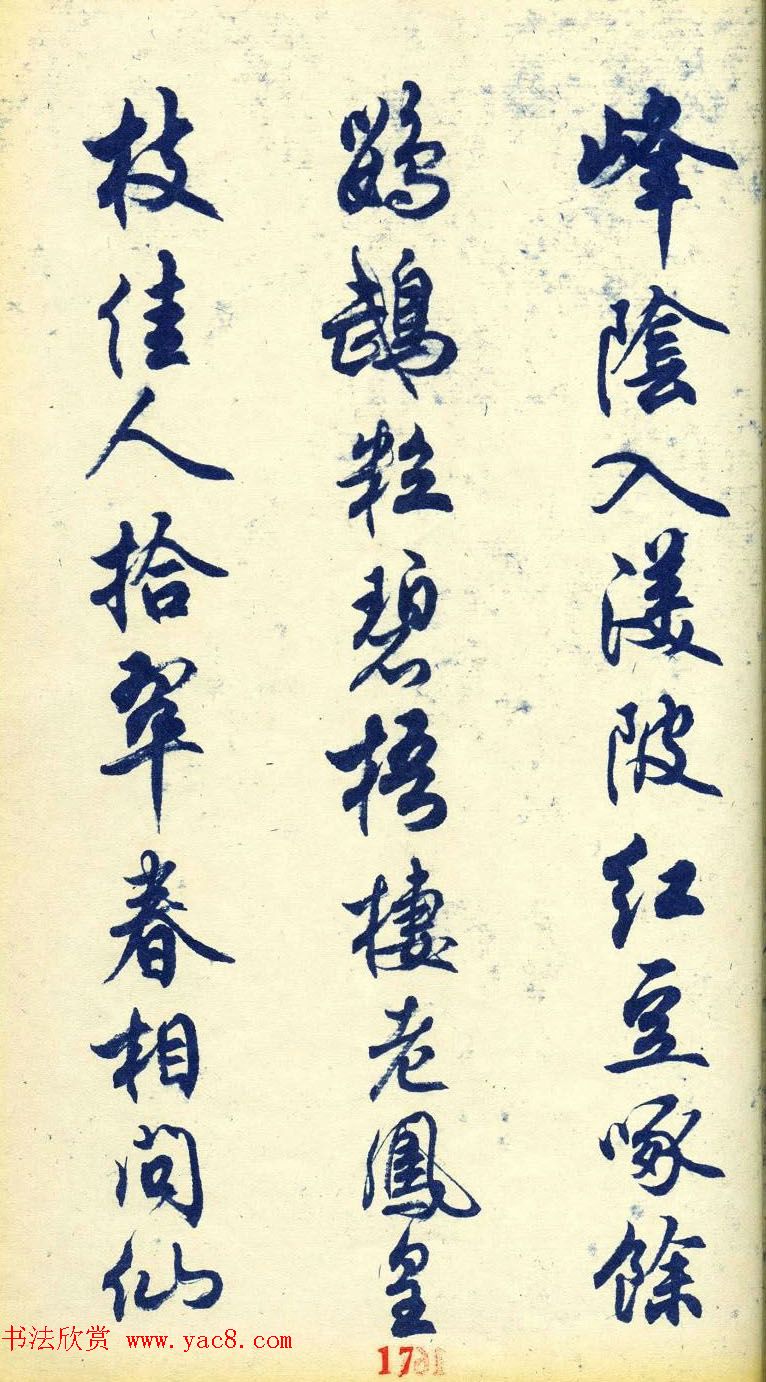 峰陰入渼陂红豆啄餘
鸚鵡粒碧梧棲老鳳皇
枝佳人拾翠春相问仙
书法欣赏 www.yac8.com
17